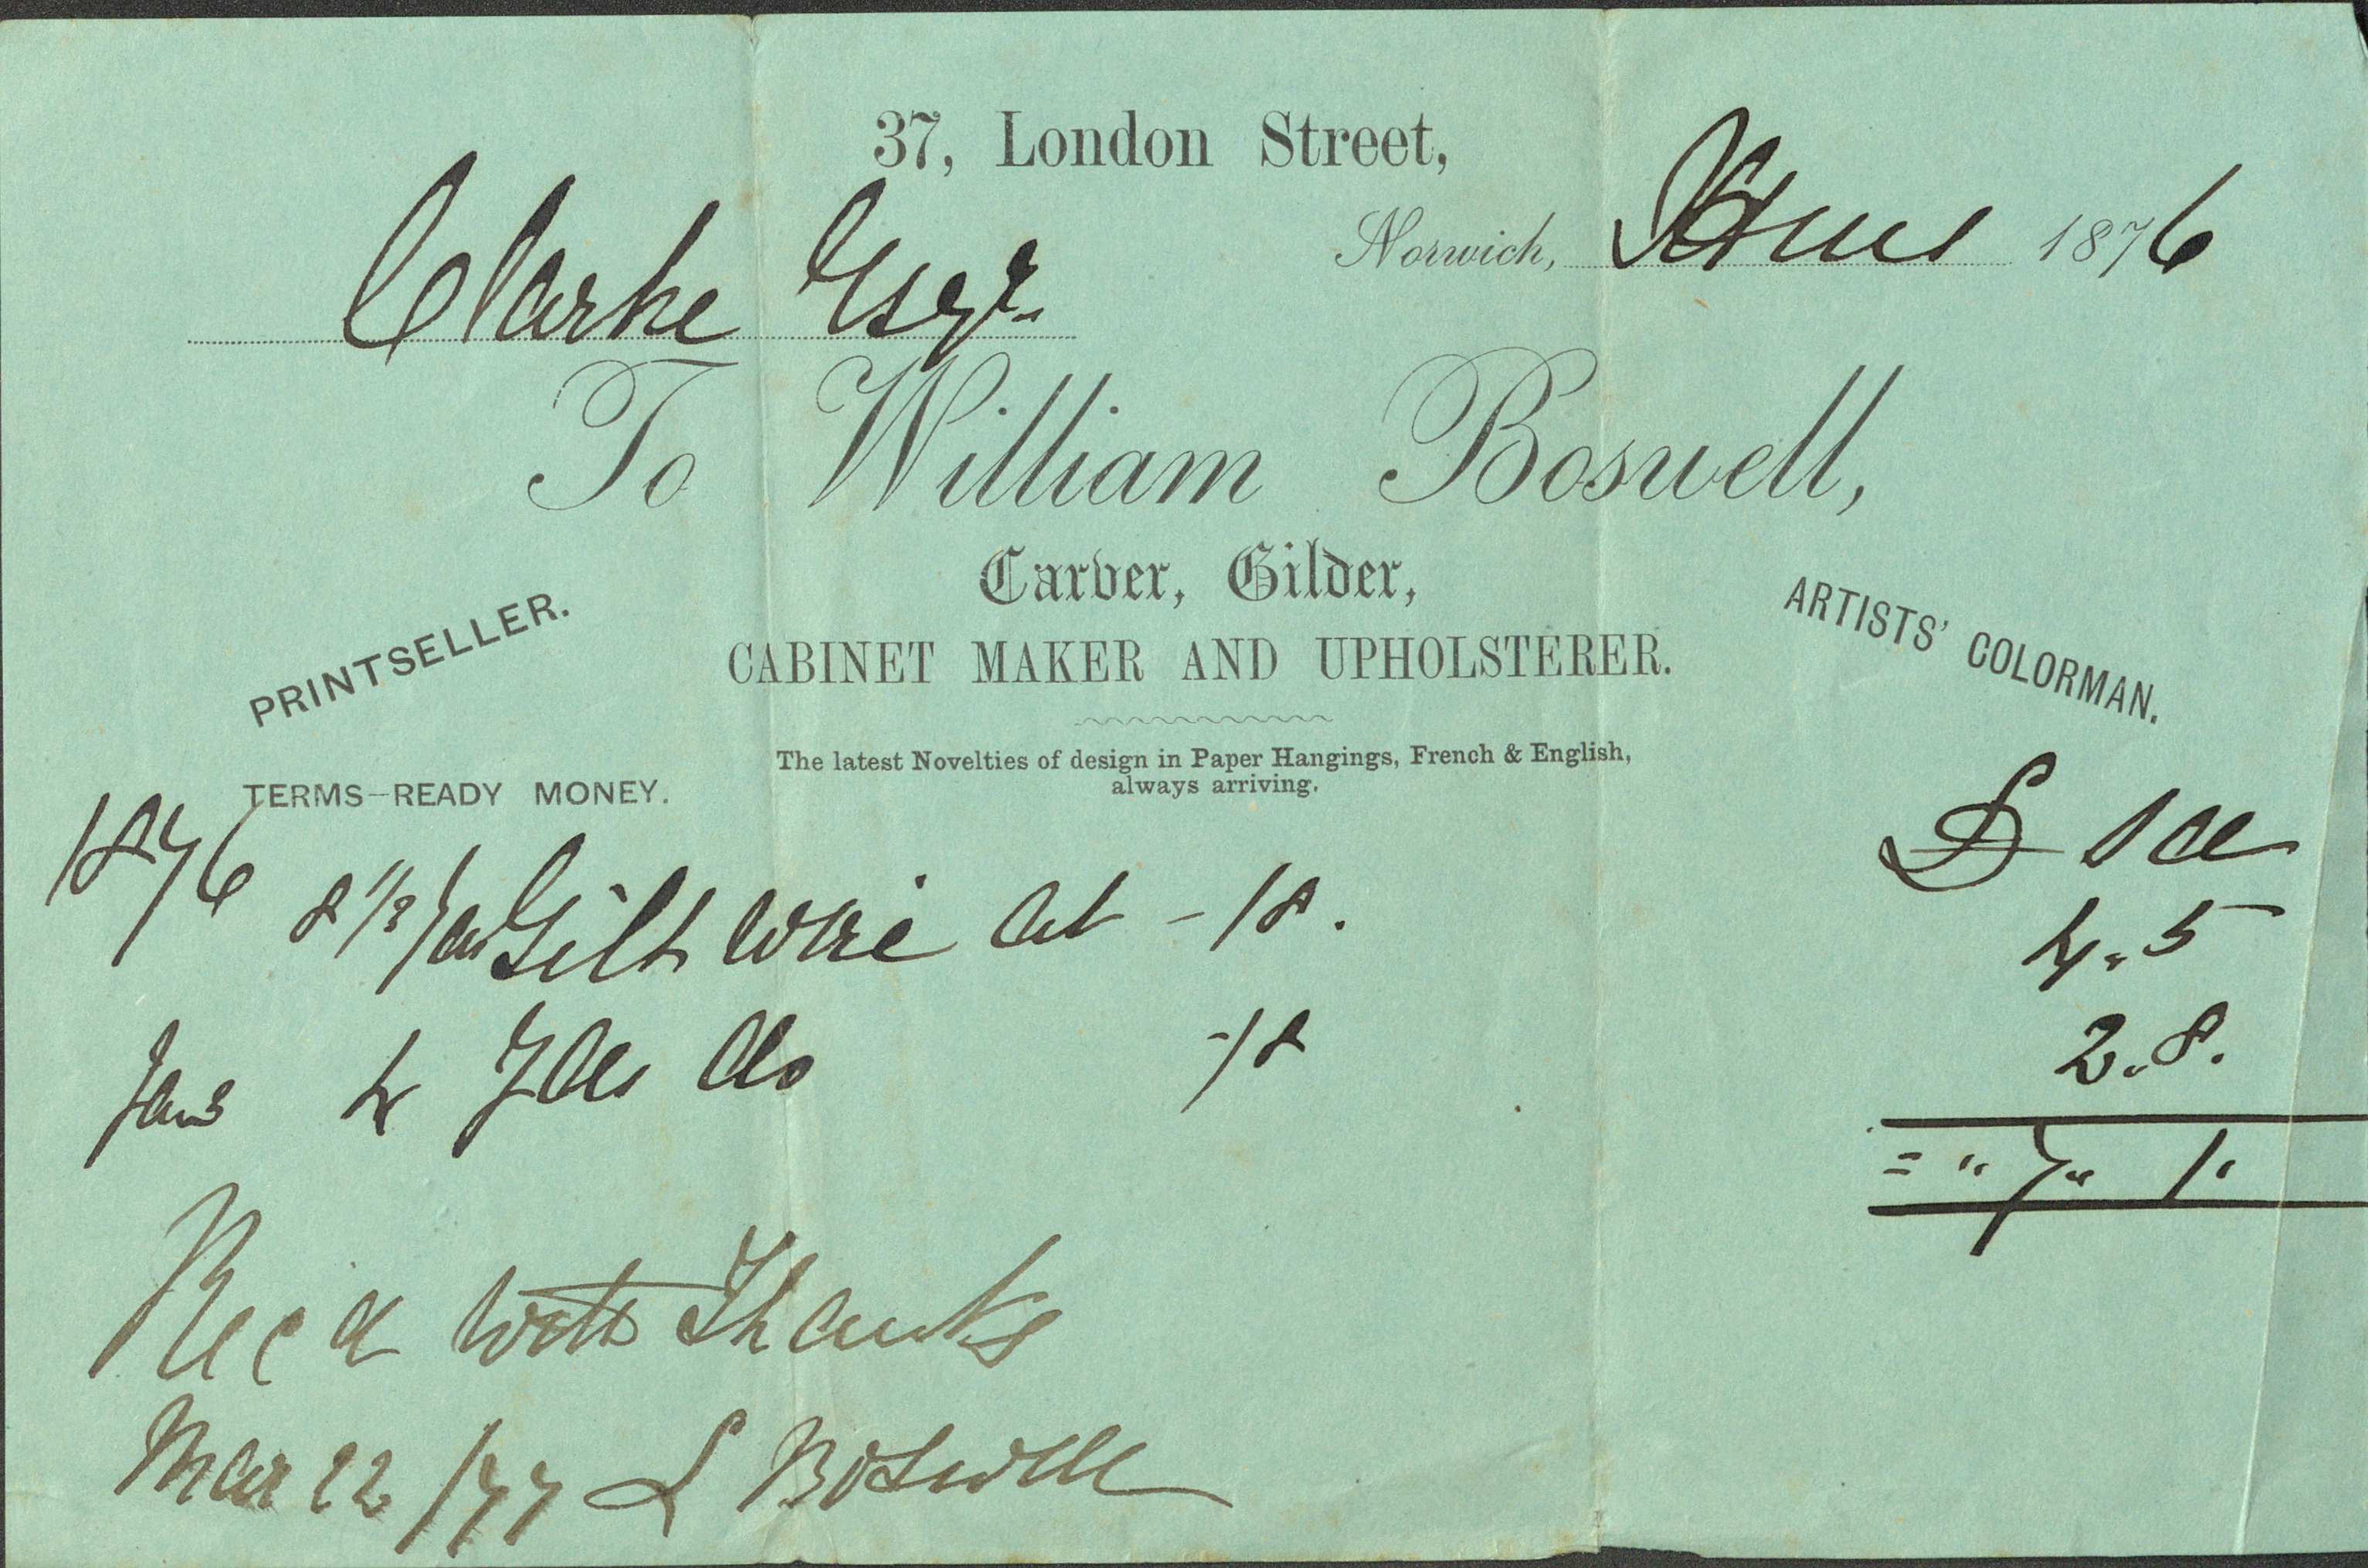 37, London Street,
Norwich, Xmas 1876
Clarke Esqr.
To William Boswell,
Carver, Gilder,
CABINET MAKER AND UPHOLSTERER.
PRINTSELLER.
ARTISTS' COLORMAN.
The latest Novelties of design in Paper Hangings, French & English,
always arriving.
TERMS–READY MONEY.
£ s d
1876 8 1/2 Gilt wire at -/8. 4.5
4 Yds do -/8 2.8.
= " 7 " 1 "
Recd with Thanks
Mar 22/77 Boswell